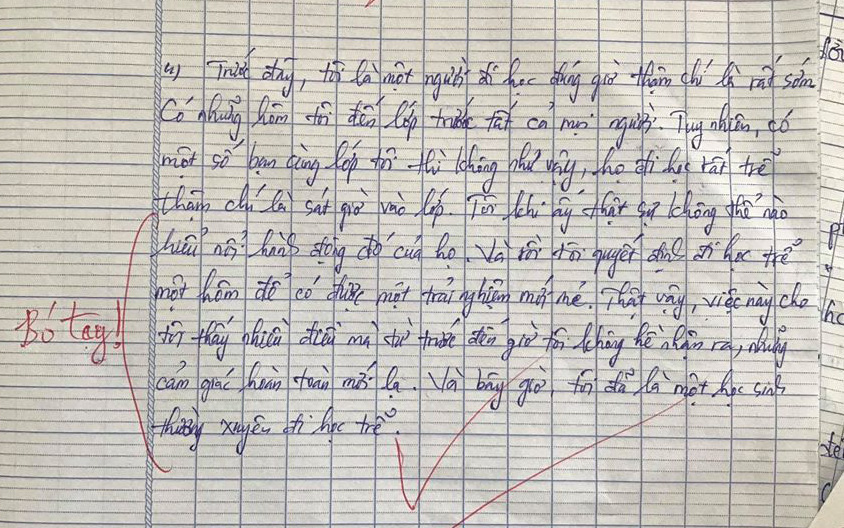 4) Trước đây, tôi là một người đi học đúng giờ thậm chí là rất sớm
Có những hôm tôi đến lớp trước tất cả mọi người. Tuy nhiên, có
một số bạn cùng lớp tôi thì không như vậy, họ đi học rất trễ
thậm chí là sát giờ vào lớp. Tôi khi ấy thật sự không thể nào
hiểu nổi hành động đó của họ. Và rồi tôi quyết định đi học trễ
một hôm để có được một trải nghiệm mới mẻ. Thật vậy, việc này cho
Bó tay!
tôi thấy nhiều điều mà từ trước đến giờ tôi không hề nhận ra, những
cảm giác hoàn toàn mới lạ. Và bây giờ, tôi đã là một học sinh
thường xuyên đi học trễ.